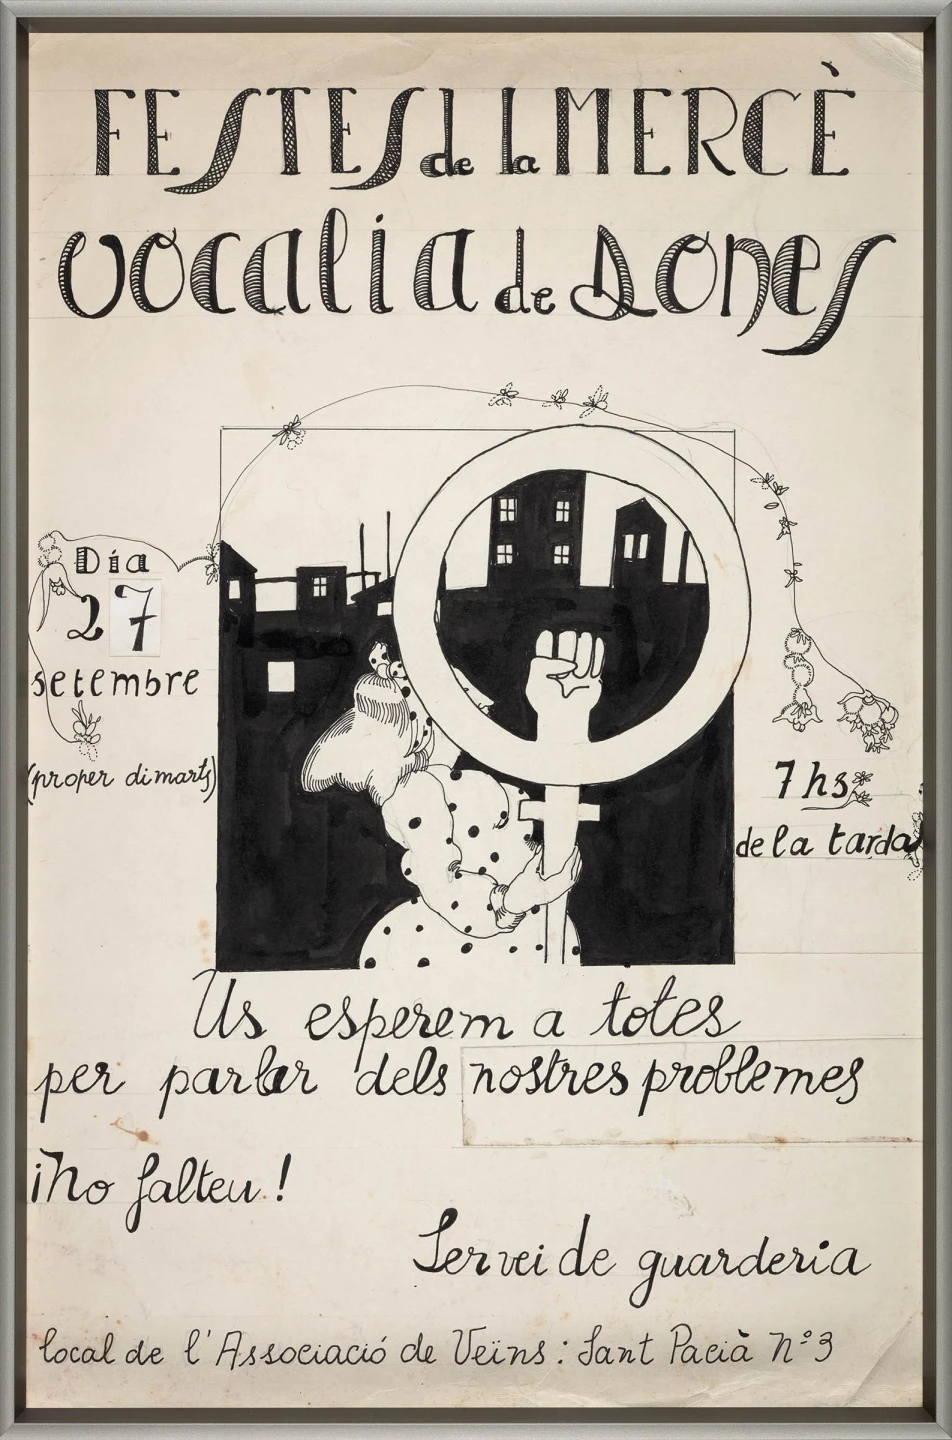 FESTES de la MERCÈ
Vocalia de Dones
Día
27
setembre
(proper dimarts)
7 hs
de la tarda
Us esperem a totes
per parlar dels nostres problemes
¡No falteu!
Servei de guarderia
local de l'Associació de Veïns: Sant Pacià Nº 3